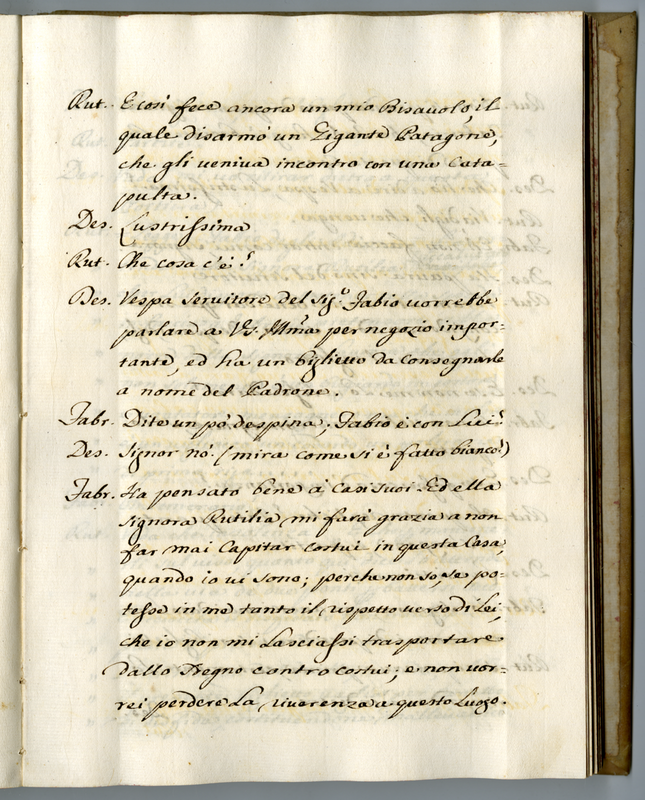 Rut. E così fece ancora un mio Bisavolo, il
quale disarmò un Gigante Patagone,
che gli veniva incontro con una Cata=
pulta.
Des. Lustrissima
Rut. Che cosa c'è?
Des. Vespa servitore del Sig.º Fabio vorrebbe
parlare a V.S. Ill̃ma per negozio impor=
tante, ed ha un biglietto da consegnarle
a nome del Padrone.
Fabr. Dite un pò despina; Fabio è con Lui?
Des. Signor nò. (mira come si è fatto bianco!)
Fabr. Ha pensato bene a' Casi suoi. Ed ella
Signora Rutilia mi farà grazia a non
far mai Capitar costui in questa Casa,
quando io vi sono; perche non so, se po=
tesse in me tanto il rispetto verso di Lei,
che io non mi Lasciassi trasportare
dallo Sdegno contro costui; e non vor=
rei perdere La riverenza a questo Luogo.